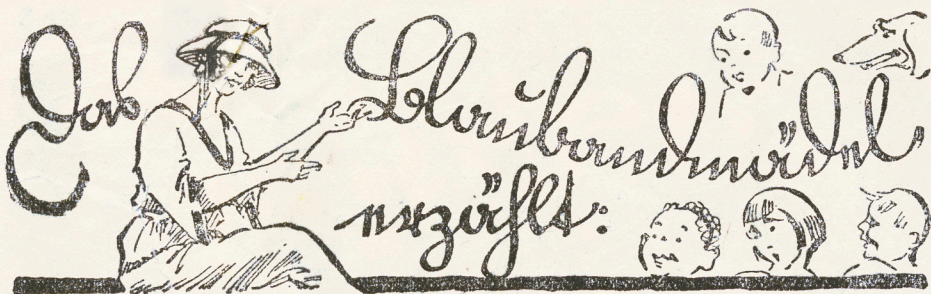 Das Blaubandmädel
erzählt: